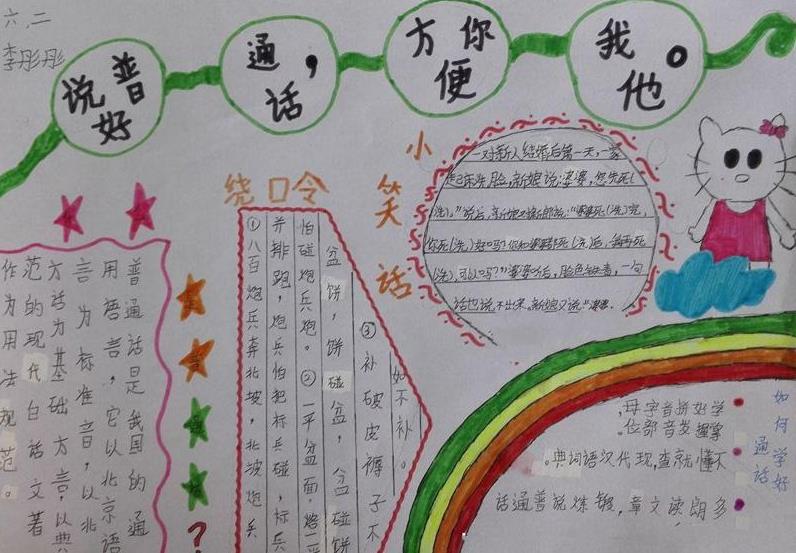 六.二
李彤彤
说好普
通话,
方便你
我他。
普通话是我国的通
用语言，它以北京语
言为标准音，以北
方言为基础方言，以典
范的现代白话文著
作为用法规范。
?
绕口令
①八百炮兵奔北坡，北坡炮兵
并排跑，炮兵怕把标兵碰，标兵
怕碰炮兵炮。②一平盆面，烙一平
盆饼，饼碰盆，盆碰饼
③补破皮褥子不
如不补。
小笑话
一对新人结婚后第一天，一家
起床洗脸，新娘说:婆婆，您先死(
(洗)。"说后，新娘又对新郎说:"婆婆死(洗)完，
你死(洗)好吗?你和婆婆都死(洗)后，我再死
(洗)，可以吗?"婆婆听后，脸色铁青，一句
话也说不出来。新娘又说:"婆婆
如何学好
通话
学好拼音字母,
掌握发音部位。
不懂就查,现代汉语词典。
多朗读文章,锻炼说普通话